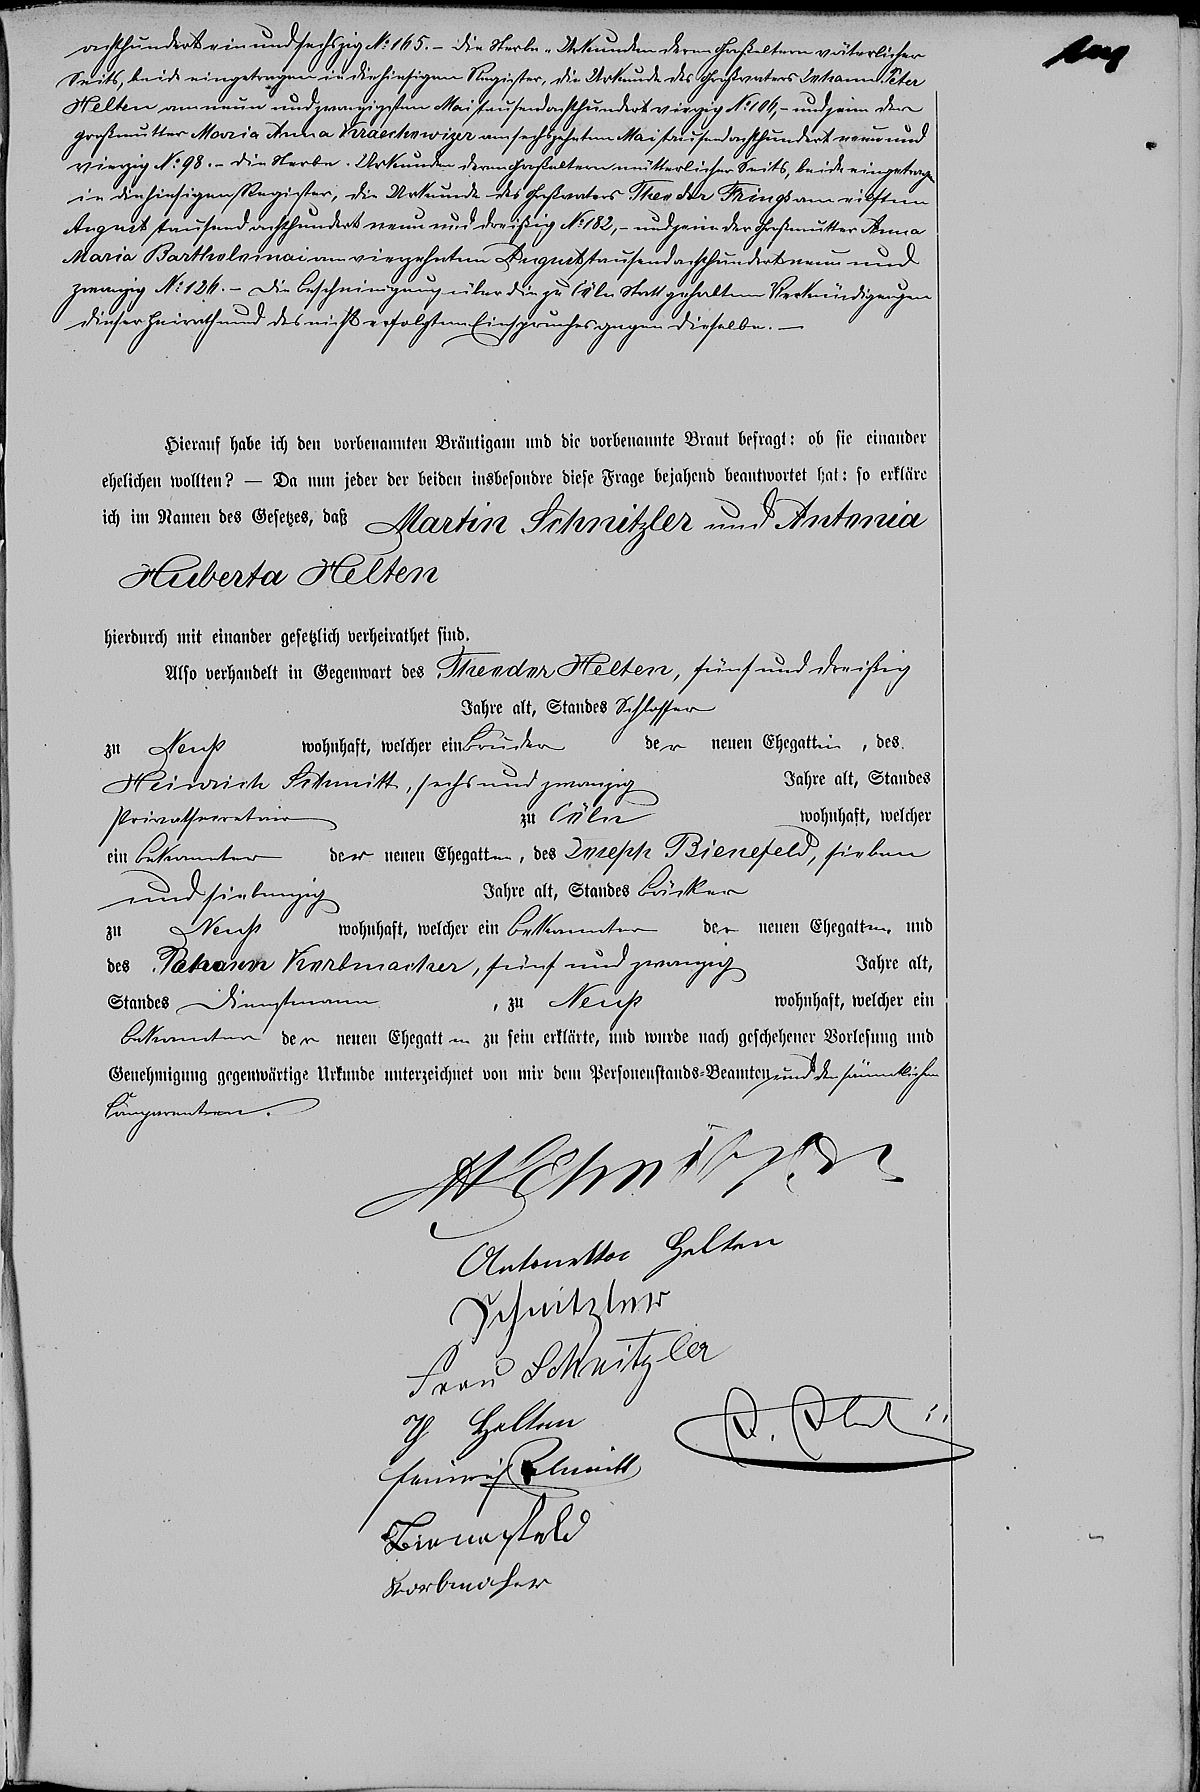 achthundert ein und sechszig No 165. – Die Sterbe-Urkunden deren Großeltern väterlicher
Seits, beide eingetragen in die hiesigen Register, die Urkunde des Großvaters Johann Peter
Helten am neun und zwanzigsten Mai tausend achthundert vierzig No 106, – und jene der
Großmutter Maria Anna Kraechewizer am sechszehnten Mai tausend achthundert neun und
vierzig No 98. – Die Sterbe-Urkunden deren Großeltern mütterlicher Seits, beide eingetragen
in die hiesigen Register, die Urkunde des Großvaters Theodor Frings am eilften
August tausend achthundert neun und dreißig No 182, – und jene der Großmutter Anna
Maria Bartholomai am vierzehnten August tausend achthundert neun und
zwanzig No 126. – Die Bescheinigung über die zu Cöln Statt gehabten Verkündigungen
dieser Heirath und des nicht erfolgten Einspruches gegen dieselbe. –
Hierauf habe ich den vorbenannten Bräutigam und die vorbenannte Braut befragt: ob sie einander
ehelichen wollten? — Da nun jeder der beiden insbesondre diese Frage bejahend beantwortet hat: so erkläre
ich im Namen des Gesetzes, daß Martin Schnitzler und Antonia
Huberta Helten
hierdurch mit einander gesetzlich verheirathet sind.
Also verhandelt in Gegenwart des Theodor Helten, fünf und dreißig
Jahre alt, Standes Schlosser
zu Neuß wohnhaft, welcher ein Bruder der neuen Ehegattin, des
Heinrich Schmitt, sechs und zwanzig Jahre alt, Standes
Privatsecretair zu Cöln wohnhaft, welcher
ein Bekannter der neuen Ehegatten, des Joseph Bienefeld, sieben
und siebenzig Jahre alt, Standes Bäcker
zu Neuß wohnhaft, welcher ein Bekannter der neuen Ehegatten und
des Johann Korbmacher, fünf und zwanzig Jahre alt,
Standes Dienstmann, zu Neuß wohnhaft, welcher ein
Bekannter der neuen Ehegatten zu sein erklärte, und wurde nach geschehener Vorlesung und
Genehmigung gegenwärtige Urkunde unterzeichnet von mir dem Personenstands-Beamten und den sämmtlichen
Comparenten.
M Schnitzler
Antonetta Helten
Schnitzler
Frau Schnitzler
Th Helten
Heinrich Schmitt
Bienefeld
Korbmacher